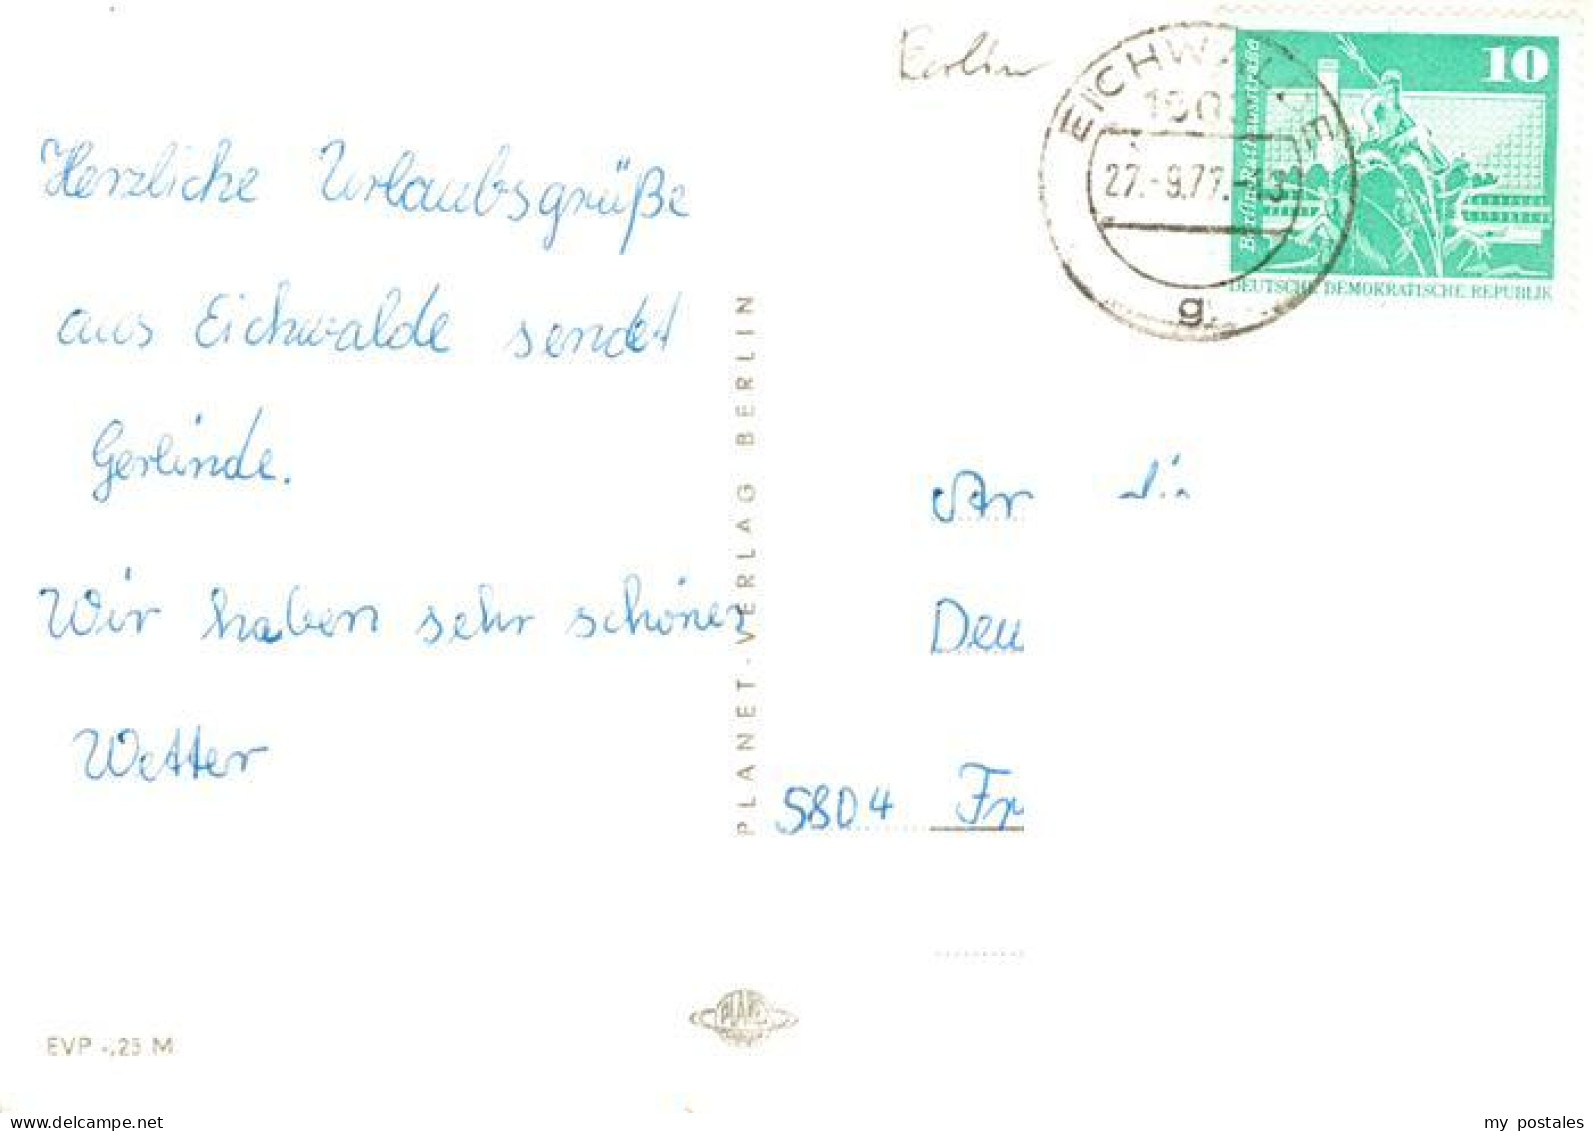 Berlin
EICHWALDE
27.-9.77.-13
g
10
Berlin, Rathausstraße
DEUTSCHE DEMOKRATISCHE REPUBLIK
Herzliche Urlaubsgrüße
aus Eichwalde sendet
Gerlinde.
Wir haben sehr schönes
Wetter
PLANET-VERLAG BERLIN
An
Deu
5804 Fr
PLANET
EVP -,25 M
www.delcampe.net
my_postales